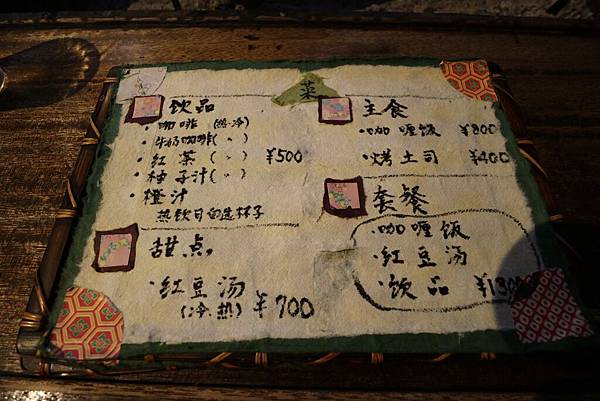 菜
饮品
·咖啡 (热·冷)
·牛奶咖啡(〃)
·红茶(〃) ¥500
·柚子汁(〃)
·橙汁
热饮可自选杯子
甜点,
·红豆汤
(冷·热) ¥700
主食
·咖喱饭 ¥800
·烤土司 ¥400
套餐
·咖喱饭
·红豆汤
·饮品 ¥1300